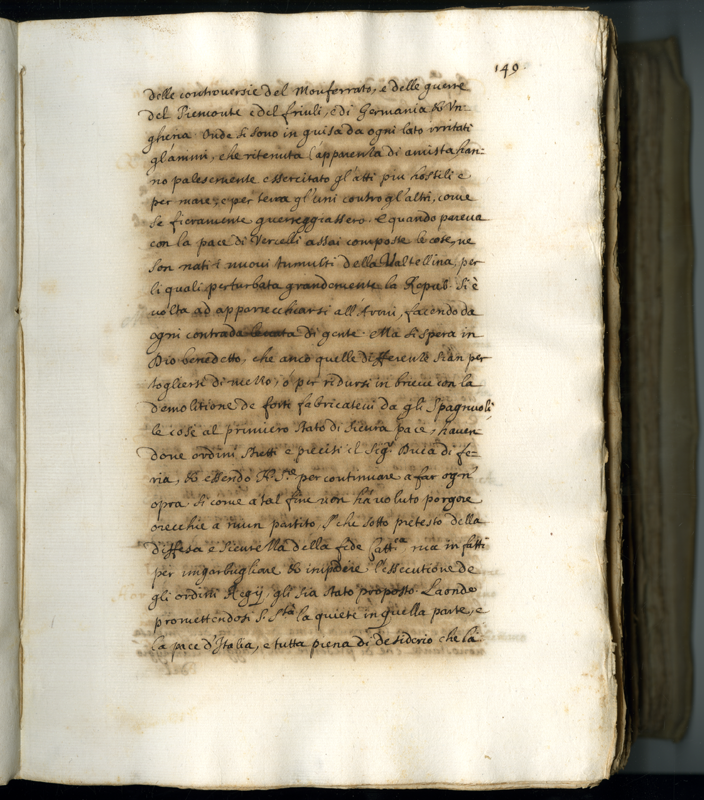 149.
delle controversie del Monferrato, e delle guerre
del Piemonte e del friuli, e di Germania & Vn-
gheria Onde si sono in guisa da ogni lato irritati
gl'animi, che ritenuta l'apparenza di amistà han-
no palesemente essercitato gl'atti piu hostili e
per mare, e per terra gl'uni contro gl'altri, come
se fieramente guerreggiassero. E quando pareua
con la pace di Vercelli assai composte le cose, ne
son nati i nuoui tumulti della Valtellina, per
li quali perturbata grandemente la Repub. si è
uolta ad apparecchiarsi all'armi, facendo da
ogni contrada leuata di gente. Ma si spera in
Dio benedetto, che anco quelle differenze sian per
togliersi di mezzo, ò per ridursi in breue con la
demolitione de forti fabricateui da gli Spagnuoli
le cose al primiero stato di sicura pace, hauen
done ordini stretti e precisi il Sig.r Duca di fe-
ria, & essendo S. S.tà per continuare a far ogn'
opra. Si come a tal fine non hà uoluto porgere
orecchie a niun partito, che sotto pretesto della
diffesa e sicurezza della fede Catt.ca ma in fatti
per ingarbugliare & impedire l'essecutione de
gli ordini Regij, gli sia stato proposto. Laonde
promettendosi S. S.tà la quiete in quella parte, e
la pace d'Italia, e tutta piena di desiderio che la